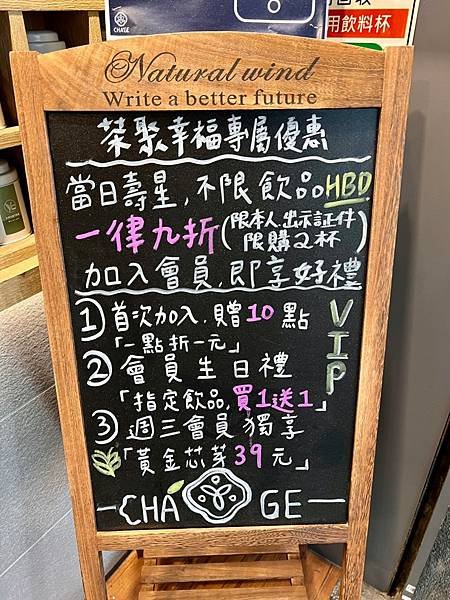 CHAGE
用飲料杯
Natural wind
Write a better future
茶聚幸福專屬優惠
當日壽星,不限飲品HBD
一律九折(限本人出示証件 限購2杯)
加入會員,即享好禮
①首次加入,贈10點
「一點折一元」
②會員生日禮
「指定飲品,買1送1」
③週三會員獨享
「黃金芯芽39元」
VIP
CHA GE